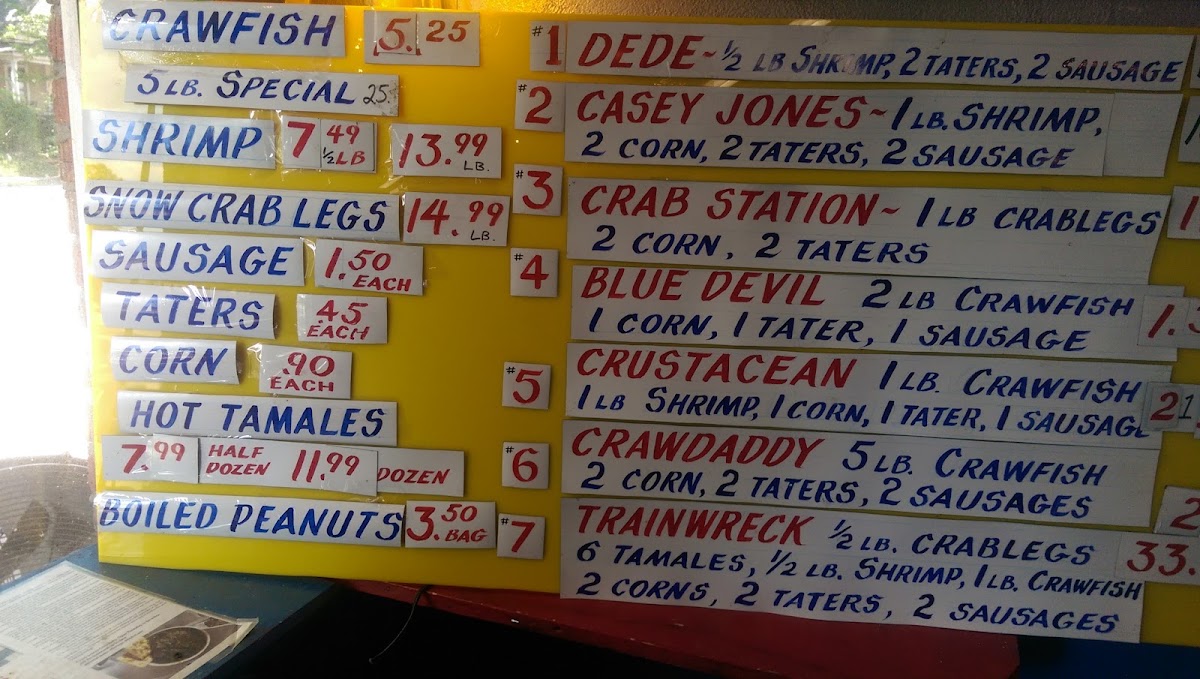 CRAWFISH 5.25
5 LB. SPECIAL 25.
SHRIMP 7.49 ½ LB 13.99 LB.
SNOW CRAB LEGS 14.99 LB.
SAUSAGE 1.50 EACH
TATERS .45 EACH
CORN .90 EACH
HOT TAMALES
7.99 HALF DOZEN 11.99 DOZEN
BOILED PEANUTS 3.50 BAG
#1 DEDE~½ LB SHRIMP, 2 TATERS, 2 SAUSAGE
#2 CASEY JONES~1 LB. SHRIMP,
2 CORN, 2 TATERS, 2 SAUSAGE
#3 CRAB STATION~ 1 LB CRABLEGS
2 CORN, 2 TATERS
#4 BLUE DEVIL 2 LB CRAWFISH
1 CORN, 1 TATER, 1 SAUSAGE
#5 CRUSTACEAN 1 LB. CRAWFISH
1 LB SHRIMP, 1 CORN, 1 TATER, 1 SAUSAGE 21.
#6 CRAWDADDY 5 LB. CRAWFISH
2 CORN, 2 TATERS, 2 SAUSAGES
#7 TRAINWRECK ½ LB. CRABLEGS 33.
6 TAMALES, ½ LB. SHRIMP, 1 LB. CRAWFISH
2 CORNS, 2 TATERS, 2 SAUSAGES